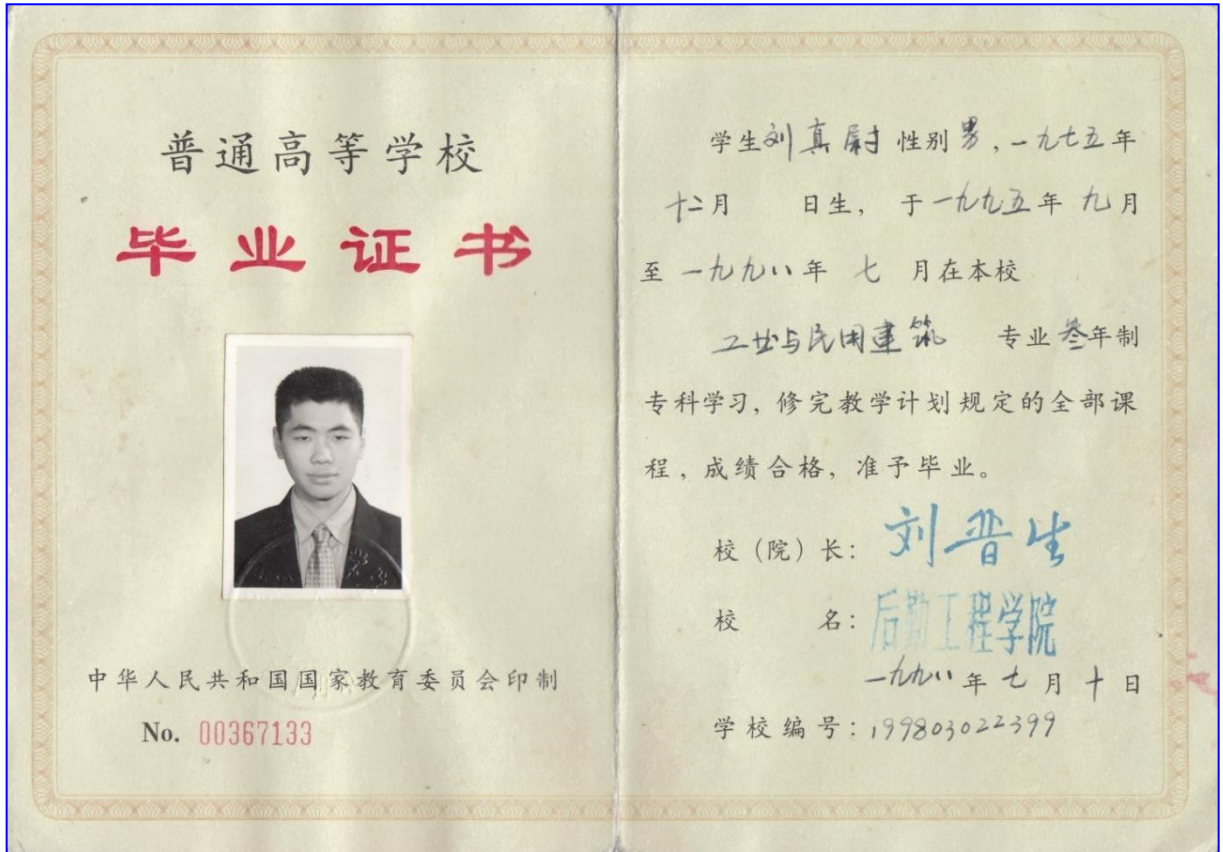 普通高等学校
毕业证书
中华人民共和国国家教育委员会印制
No. 00367133
学生刘真尉 性别男，一九七五年
十二月 日生，于一九九五年九月
至一九九八年 七 月在本校
工业与民用建筑 专业叁年制
专科学习，修完教学计划规定的全部课
程，成绩合格，准予毕业。
校（院）长：刘晋生
校 名：后勤工程学院
一九九八年七月十日
学校编号：199803022399